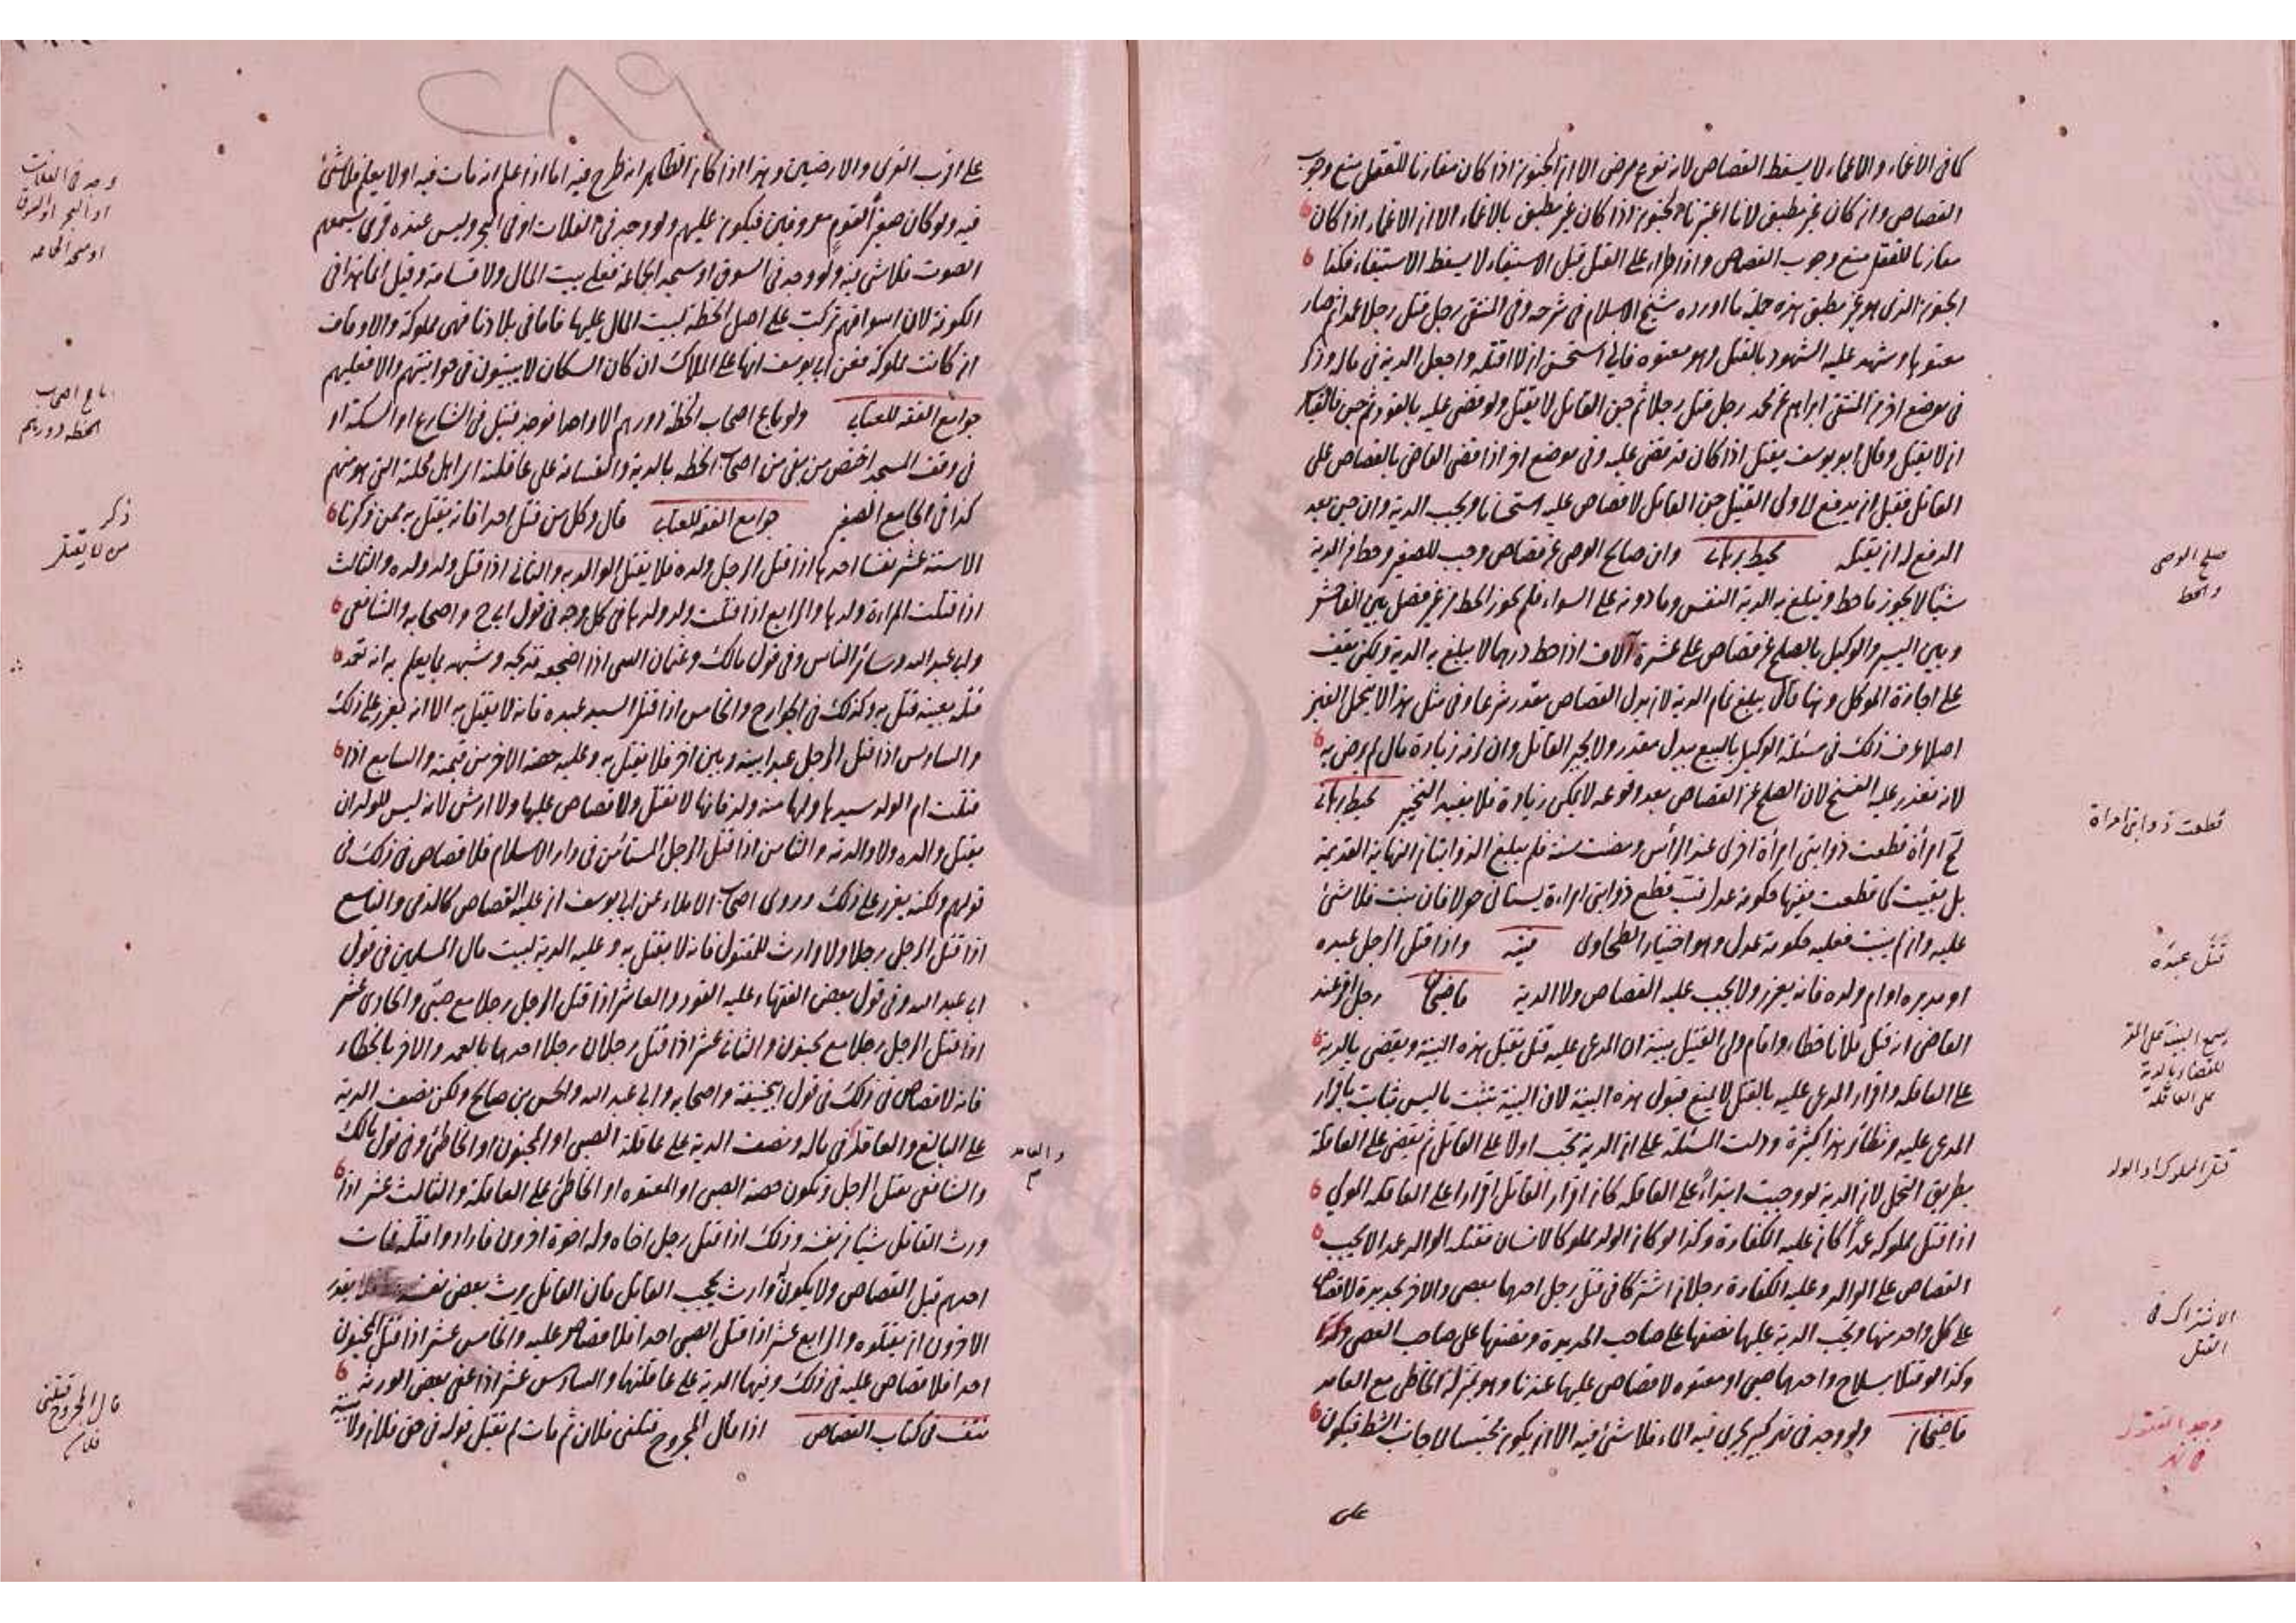 كما في الاغماء والاغماء لا يسقط القصاص لانه نوع مرض الا ان الجنون اذا كان مقارنا للقتل منع وجوب
القصاص وان كان غير مطبق لانا اعتبرنا الجنون اذا كان غير مطبق بالاغماء الا ان الاغماء اذا كان
مقارنا للقتل منع وجوب القصاص واذا طراء على القتل قبل الاستيفاء لا يسقط الاستيفاء فكذا
الجنون الذى هو غير مطبق هذه جملة ما اورده شيخ الاسلام في شرحه وفي المنتقى رجل قتل رجلا عمدا ثم صار
معتوها وشهد عليه الشهود بالقتل وهو معتوه فاني استحسن ان لا اقتله واجعل الدية في ماله وذكر
في موضع اخر من المنتقى ابراهيم عن محمد رجل قتل رجلا ثم جن القاتل لا يقتل ولو قضى عليه بالقود ثم جن فالقياس
ان لا يقتل وقال ابو يوسف يقتل اذا كان قد قضى عليه وفي موضع اخر اذا قضى القاضى بالقصاص على
القاتل فقبل ان يدفع الى ولى القتيل جن القاتل لا قصاص عليه استحسانا ويجب الدية وان جن بعد
الدفع له ان يقتله محيط برهاني وان صالح الوصى عن قصاص وجب للصغير وحط من الدية
شيئا لا يجوز ما حط ويبلغ به الدية النفس وما دونه على السواء فلم يجوز الحط من غير فصل بين الفاحش
وبين اليسير والوكيل بالصلح عن قصاص على عشرة آلاف اذا حط درهما لا يبلغ به الدية ولكن يقف
على اجازة الموكل وهنا قال يبلغ تمام الدية لان بدل القصاص مقدر شرعا وفي مثل هذا لا يتحمل الغبن
اصلا عرف ذلك في مسئلة الوكيل بالبيع ببدل مقدر ولا يخير القاتل وان لزمه زيادة مال لم يرض به
لانه تعذر عليه الفسخ لان الصلح عن القصاص بعد وقوعه لا يمكن زيادة فلا يفيد التخيير محيط برهاني
امرأة قطعت ذوابتى امرأة اخرى عند الرأس ومضت سنة فلم يبلغ الذوابتان النهاية القديمة
بل بقيت كما قطعت ففيها حكومة عدل قطع ذوابتى امراءة يستأنى حولا فان نبت فلا شئ
عليه وان لم ينبت فعليه حكومة عدل وهو اختيار الطحاوى قنيه واذا قتل الرجل عبده
او مدبره او ام ولده فانه يعزر ولا يجب عليه القصاص ولا الدية قاضيخان رجل اقر عند
القاضى انه قتل فلانا خطاء واقام ولى القتيل بينة ان المدعى عليه قتل يقبل هذه البينة ويقضى بالدية
على العاقلة واقرار المدعى عليه بالقتل لا يمنع قبول هذه البينة لان البينة تثبت ما ليس بثابت باقرار
المدعى عليه ونظائر هذا كثيرة ودلت المسئلة على ان الدية تجب اولا على القاتل ثم يقضى على العاقلة
بطريق التحمل لان الدية لو وجبت ابتداءً على العاقلة كان اقرار القاتل اقرارا على العاقلة المولى
اذا قتل مملوكه عمداً كان عليه الكفارة وكذا لو كان الولد مملوكا لانسان فقتله الوالد عمدا لا يجب
القصاص على الوالد وعليه الكفارة رجلان اشتركا في قتل رجل احدهما بعصى والاخر بحديدة لا قصاص
على كل واحد منهما وتجب الدية عليهما نصفها على صاحب الحديدة ونصفها على صاحب العصى وكذا
وكذا لو قتلا بسلاح واحدهما صبى او معتوه لا قصاص عليهما عندنا وهو بمنزلة الخاطى مع العامد
قاضيخان ولو وجد في نهر كبير يجرى فيه الماء فلا شئ فيه الا ان يكون محتبسا الى جانب الشط فيكون
على
صلح الوصى
والحط
قطعت ذوابتى امراة
قتل عبده
يسمع البينة على المقر
للقضاء بالدية
على العاقلة
قتل المملوك او الولد
الاشتراك في
القتل
وجد المقتول
في نهر
على اقرب القرى والارضيين وهذا اذا كان الظاهر انه طرح فيه اما اذا علم انه مات فيه او لا يعلم فلا شئ
فيه ولو كان صغيراً لقوم معروفين فيكون عليهم ولو وجد في الفلات او في البحر وليس عنده قرى يسمعهم
الصوت فلا شئ فيه ولو وجد في السوق او مسجد الجماعة فعلى بيت المال ولا قسامة وقيل انما هذا في
الكوفة لان اسواقهم تركت على اصل الخطة لبيت المال عليها فاما في بلادنا فهى مملوكة والاوقاف
ان كانت مملوكة فعن ابي يوسف انها على الملاك ان كان السكان لا يبيتون في حوانيتهم والا فعليهم
جوامع الفقه للعتابي ولو باع اصحاب الخطة دورهم الا واحدا فوجد قتيل في الشارع او السكة او
في وقف المسجد اختص من بقى من اصحاب الخطة بالدية والقسامة على عاقلته اى اهل محلته التى هو منهم
كذا في الجامع الصغير جوامع الفقه للعتابي قال وكل من قتل احدا فانه يقتل به ممن ذكرنا
الا ستة عشر نفسا احدها اذا قتل الرجل ولده فلا يقتل الوالد به والثاني اذا قتل ولد ولده والثالث
اذا قتلت المراءة ولدها والرابع اذا قتلت ولد ولدها في كل وجه في قول ابى ح واصحابه والشافعى
وابى عبد الله وسائر الناس وفي قول مالك وعثمان البتى اذا اضجعه فذبحه وشبهه بما يعلم به انه تعمد
قتله بعينه قتل به وكذلك في الجوارح والخامس اذا قتل السيد عبده فانه لا يقتل به الا انه يعزر على ذلك
والسادس اذا قتل الرجل عبدا بينه وبين اخر فلا يقتل به وعليه حصة الاخر من قيمته والسابع اذا
قتلت ام الولد سيدها ولها منه ولد فانها لا تقتل ولا قصاص عليها ولا ارش لانه ليس للولد ان
يقتل والده ولا والدته والثامن اذا قتل الرجل المستأمن في دار الاسلام فلا قصاص في ذلك في
قولهم ولكنه يعزر على ذلك وروى اصحاب الاملاء عن ابي يوسف ان عليه القصاص كالذمى والتاسع
اذا قتل الرجل رجلا ولا وارث للمقتول فانه لا يقتل به وعليه الدية لبيت مال المسلمين في قول
ابى عبد الله وفي قول بعض الفقهاء عليه القود والعاشر اذا قتل الرجل رجلا مع صبى والحادى عشر
اذا قتل الرجل رجلا مع مجنون والثاني عشر اذا قتل رجلان رجلا احدهما بالعمد والاخر بالخطاء
فانه لا قصاص في ذلك في قول ابى حنيفة واصحابه وابى عبد الله والحسن بن صالح ولكن نصف الدية
على البالغ والعاقل في ماله ونصف الدية على عاقلة الصبى او المجنون او الخاطئ وفي قول مالك
والشافعى يقتل الرجل وتكون حصة الصبى او المعتوه او الخاطئ على العاقلة والثالث عشر اذا
ورث القاتل شيئا من نفسه وذلك اذا قتل رجل اخاه وله اخوة اخرون فارادوا قتله فمات
احدهم قبل القصاص ولا يكون له وارث يحجب القاتل فان القاتل يرث بعض نفسه فلا يقدر
الاخرون ان يقتلوه والرابع عشر اذا قتل الصبى احدا فلا قصاص عليه والخامس عشر اذا قتل المجنون
احدا فلا قصاص عليه في ذلك وفيهما الدية على عاقلتهما والسادس عشر اذا عفى بعض الورثة
نتف في كتاب القصاص اذا قال المجروح قتلنى فلان ثم مات لم يقبل قوله في حق فلان ولا بينة
وجد في الفلات
او البحر او السوق
او مسجد الجماعة
باع اصحاب
الخطة دورهم
ذكر
من لا يقتل
والعامد
قال المجروح قتلنى
فلان
٢٨٩